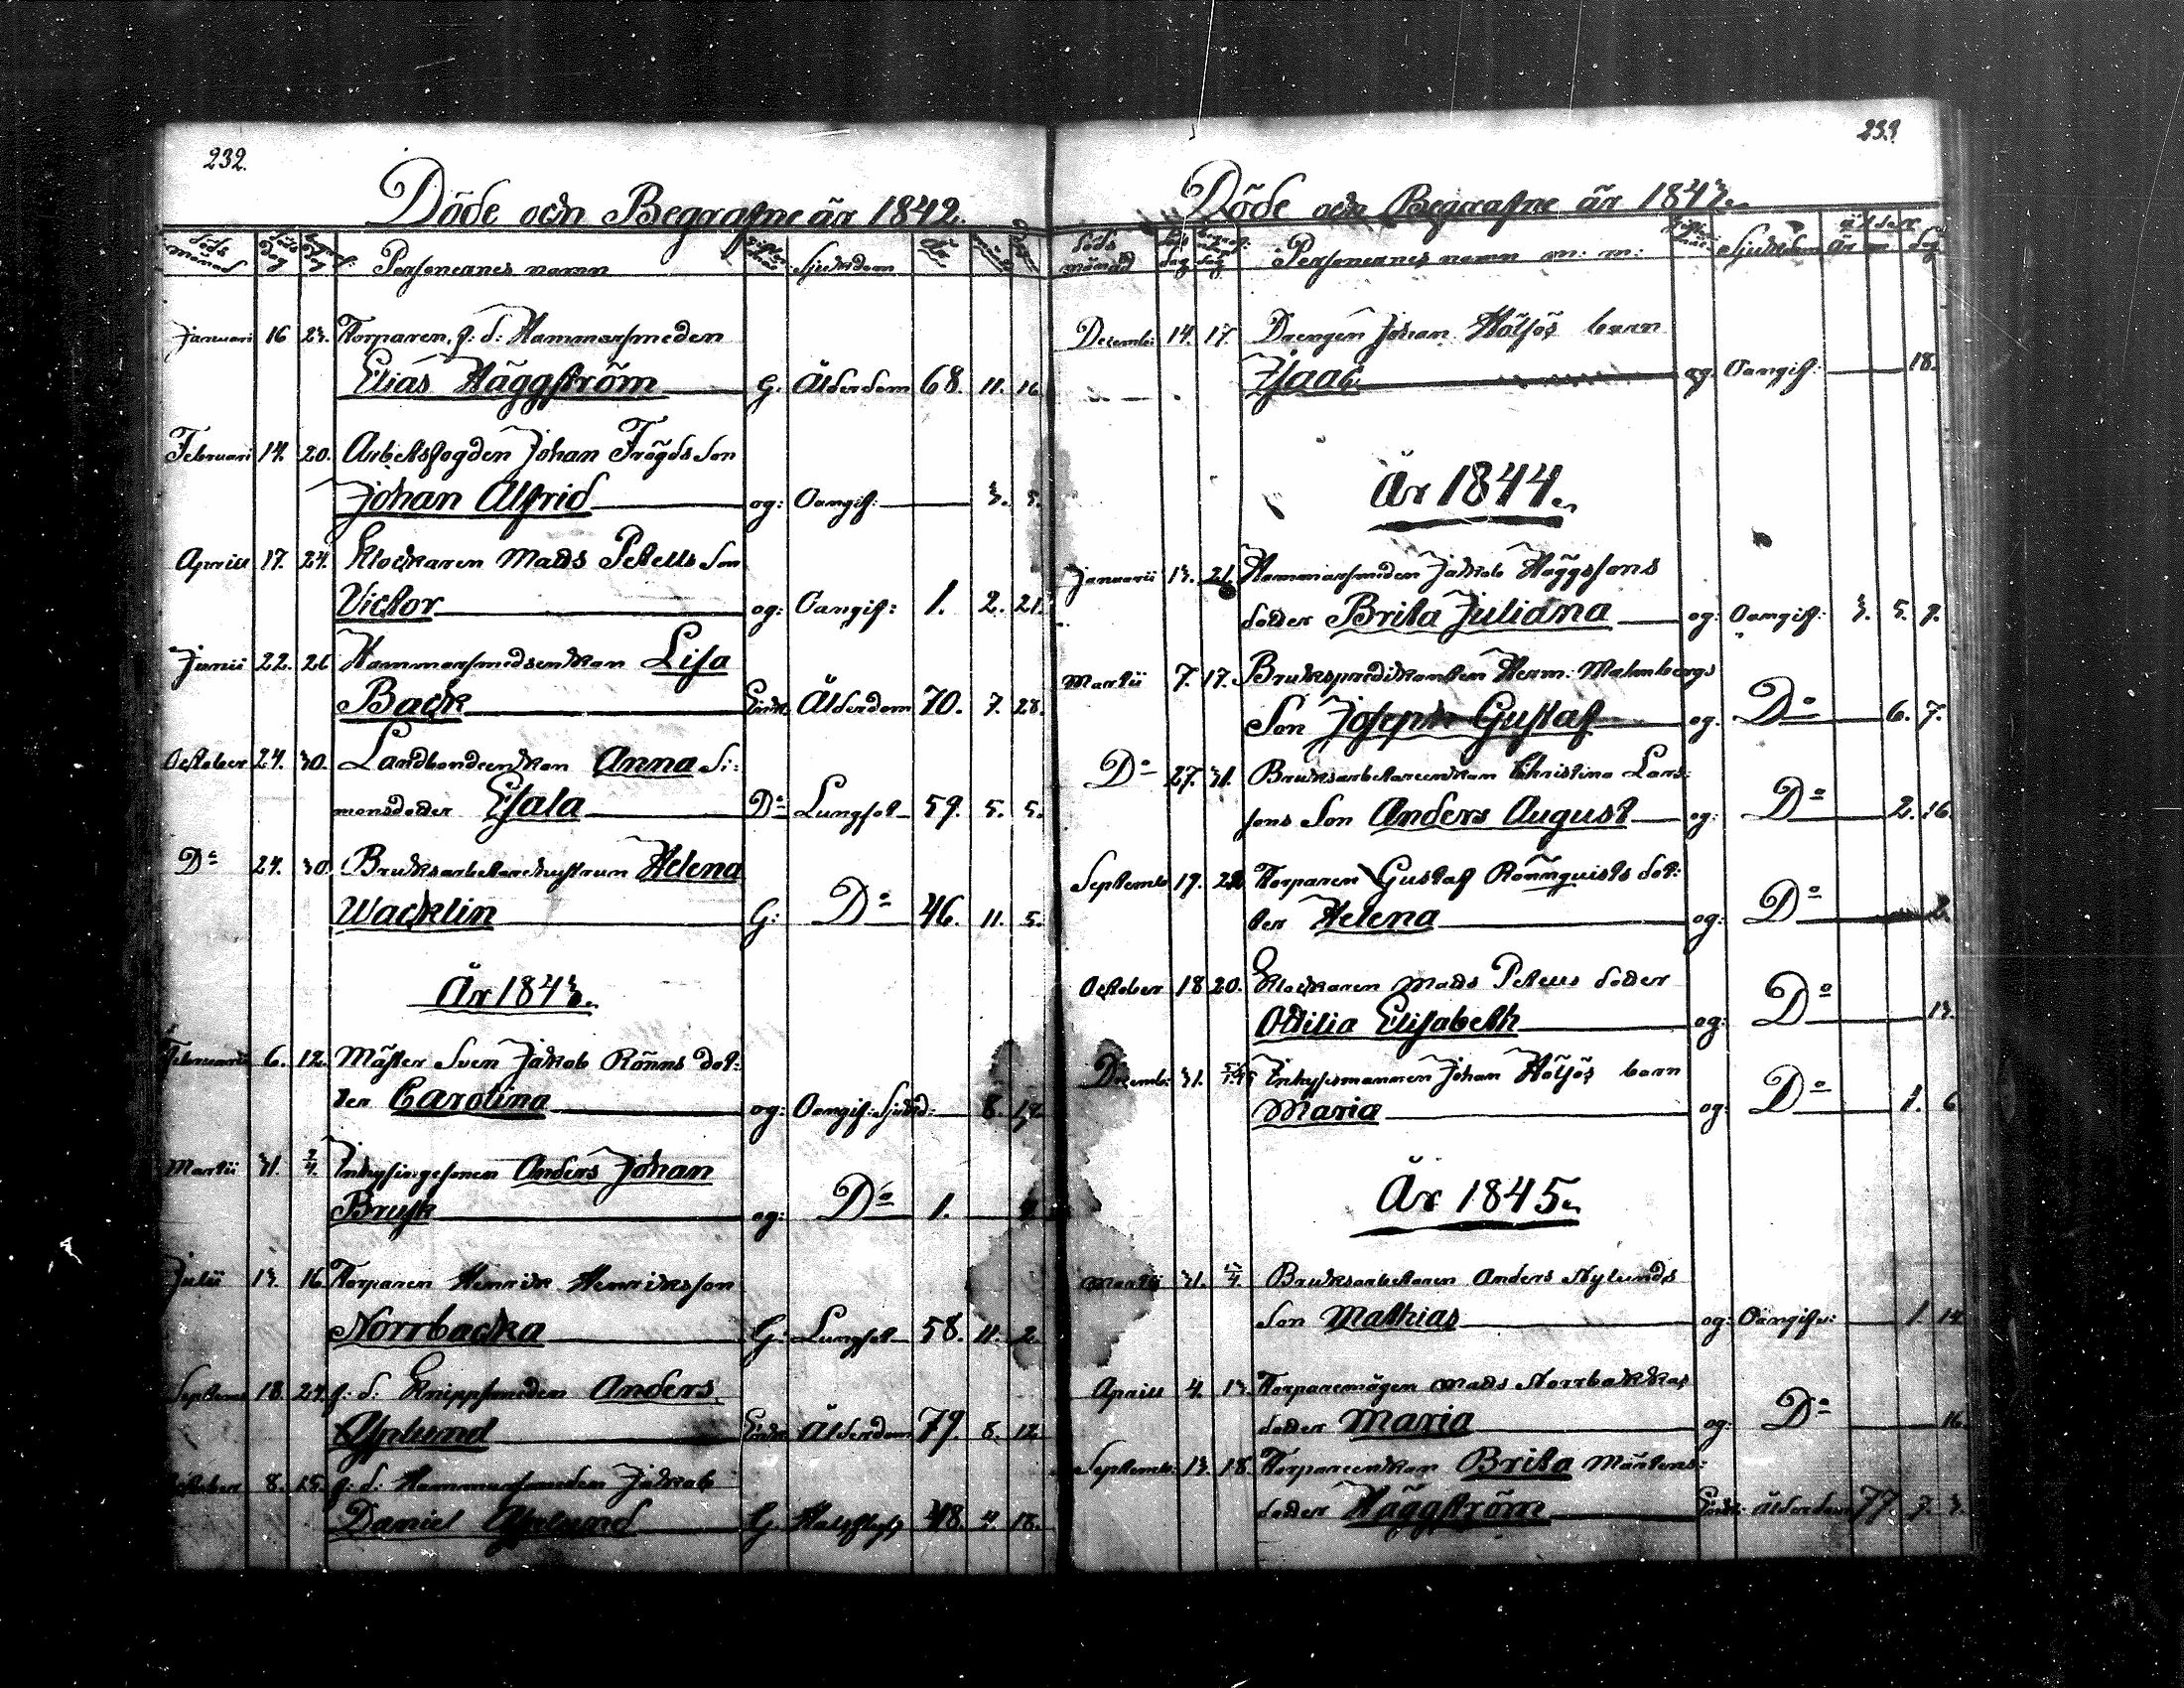 232.
Döde och Begrafne år 1842.
döds månad döds dag begrafn: dag Personernes namn Sjukdom år
Januari 16 23. Torparen, f: d: Hammarsmeden
Elias Häggström G: Ålderdom 68. 11. 16.
Februari 14. 20. Arbetsfogden Johan Frögds son
Johan Alfrid og: Oangif: 3. 5.
Aprill 17. 24. Klockaren Matts Petells son
Victor og: Oangif: 1. 2. 21.
Junii 22. 26 Hammarsmedsenkan Lisa
Back Enk: Ålderdom 70. 7. 28.
October 24. 30. Landbondeenkan Anna Si:
monsdotter Esala Do Lungsot 59. 5. 5.
Do 24. 30. Bruksarbetarehustrun Helena
Wacklin G: Do 46. 11. 5.
År 1843.
Februarii 6. 12. Mäster Sven Jakob Rönns dot:
ter Carolina og: Oangif: Sjukd: 8. 12
Martii 31. 2/4. Inhysingesonen Anders Johan
Brusk og: Do 1.
Julii 13. 16 Torparen Henrik Henriksson
Norrbacka G: Lungsot 58. 11. 2.
Septemb 18. 24. f: d: Knippsmeden Anders
Asplund Enk: Ålderdom 79. 8. 12
October 8. 15. f: d: Hammarsmeden Jakob
Daniel Asplund G. 48. 4. 18.
233.
Döde och Begrafne år 1843.
döds månad döds dag begraf: dag Personernes namn m: m: Sjukdom ålder år m dag
Decemb: 14. 17. Drengen Johan Höljös barn
Isaac og. Oangif: 18.
År 1844.
Januarii 13. 21. Hammarsmeden Jakob Häggsons
dotter Brita Juliana og: Oangif: 3. 5. 9.
Martii 7. 17. Brukspredikanten Herm: Malmbergs
Son Joseph Gustaf og. Do 6. 7.
Do 27. 31. Bruksarbetareenkan Christina Lars:
sons Son Anders August og: Do 2. 16.
Septemb 19. 22 Torparen Gustaf Rönnquists dot:
ter Helena og: Do 2.
October 18 20. Klockaren Matts Petells dotter
Ottilia Elisabeth og: Do 13.
Decemb: 31. Inhysesmannen Johan Höljös barn
Maria og: Do 1. 6
År 1845.
Martii 31. 13/4. Bruksarbetaren Anders Nylunds
Son Mathias og: Oangifv: 1. 14.
Aprill 4. 13. Torparemågen Matts Norrbackas
dotter Maria og: Do 16.
Septemb: 13. 18. Torpareenkan Brita Mårtens:
dotter Häggström Enk: Ålderdom 77. 7. 3.